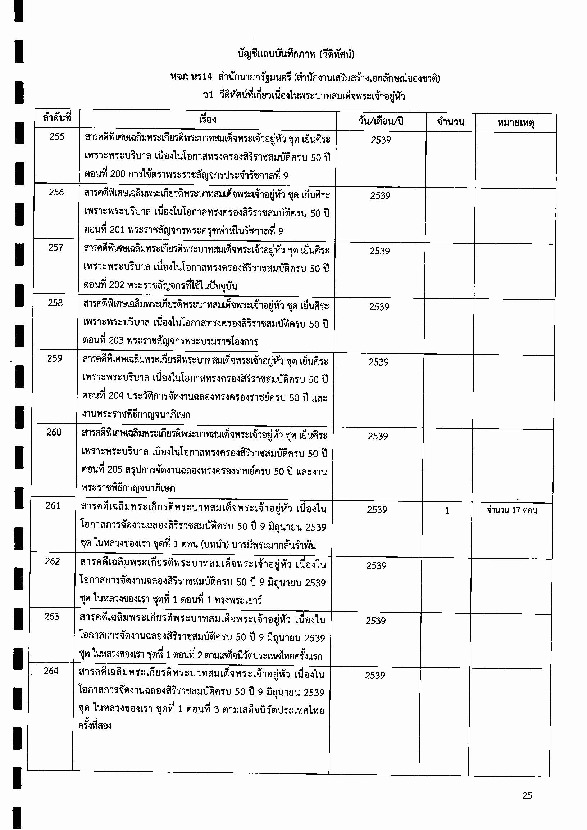 บัญชีแถบบันทึกภาพ (วีดิทัศน์)
หจภ นร14 สำนักนายกรัฐมนตรี (สำนักงานเสริมสร้างเอกลักษณ์ของชาติ)
วีดิทัศน์ที่เกี่ยวเนื่องในพระบาทสมเด็จพระเจ้าอยู่หัว
ลำดับที่ เรื่อง วัน/เดือน/ปี จำนวน หมายเหตุ
255 สารคดีพิเศษเฉลิมพระเกียรติพระบาทสมเด็จพระเจ้าอยู่หัว ชุด เย็นศิระ 2539
เพราะพระบริบาล เนื่องในโอกาสทรงครองสิริราชสมบัติครบ 50 ปี
ตอนที่ 200 การใช้ตราพระราชสัญจกรประจำรัชกาลที่ 9
256 สารคดีพิเศษเฉลิมพระเกียรติพระบาทสมเด็จพระเจ้าอยู่หัว ชุด เย็นศิระ 2539
เพราะพระบริบาล เนื่องในโอกาสทรงครองสิริราชสมบัติครบ 50 ปี
ตอนที่ 201 พระราชลัญจกรพระครุฑพ่าห์ในรัชกาลที่ 9
257 สารคดีพิเศษเฉลิมพระเกียรติพระบาทสมเด็จพระเจ้าอยู่หัว ชุด เย็นศิระ 2539
เพราะพระบริบาล เนื่องในโอกาสทรงครองสิริราชสมบัติครบ 50 ปี
ตอนที่ 202 พระราชลัญจกรที่ใช้ในปัจจุบัน
258 สารคดีพิเศษเฉลิมพระเกียรติพระบาทสมเด็จพระเจ้าอยู่หัว ชุด เย็นศิระ 2539
เพราะพระบริบาล เนื่องในโอกาสทรงครองสิริราชสมบัติครบ 50 ปี
ตอนที่ 203 พระราชลัญจกรพระบรมราชโองการ
259 สารคดีพิเศษเฉลิมพระเกียรติพระบาทสมเด็จพระเจ้าอยู่หัว ชุด เย็นศิระ 2539
เพราะพระบริบาล เนื่องในโอกาสทรงครองสิริราชสมบัติครบ 50 ปี
ตอนที่ 204 ประวัติการจัดงานฉลองทรงครองราชย์ครบ 50 ปี และ
งานพระราชพิธีกาญจนาภิเษก
260 สารคดีพิเศษเฉลิมพระเกียรติพระบาทสมเด็จพระเจ้าอยู่หัว ชุด เย็นศิระ 2539
เพราะพระบริบาล เนื่องในโอกาสทรงครองสิริราชสมบัติครบ 50 ปี
ตอนที่ 205 สรุปการจัดงานฉลองทรงครองราชย์ครบ 50 ปี และงาน
พระราชพิธีกาญจนาภิเษก
261 สารคดีเฉลิมพระเกียรติพระบาทสมเด็จพระเจ้าอยู่หัว เนื่องใน 2539 1 จำนวน 17 ตอน
โอกาสการจัดงานฉลองสิริราชสมบัติครบ 50 ปี 9 มิถุนายน 2539
ชุด ในหลวงของเรา ชุดที่ 1 ตอน (บทนำ) บารมีพระมากล้นรำพัน
262 สารคดีเฉลิมพระเกียรติพระบาทสมเด็จพระเจ้าอยู่หัว เนื่องใน 2539
โอกาสการจัดงานฉลองสิริราชสมบัติครบ 50 ปี 9 มิถุนายน 2539
ชุด ในหลวงของเรา ชุดที่ 1 ตอนที่ 1 ทรงพระเยาว์
263 สารคดีเฉลิมพระเกียรติพระบาทสมเด็จพระเจ้าอยู่หัว เนื่องใน 2539
โอกาสการจัดงานฉลองสิริราชสมบัติครบ 50 ปี 9 มิถุนายน 2539
ชุด ในหลวงของเรา ชุดที่ 1 ตอนที่ 2 ตามเสด็จนิวัตประเทศไทยครั้งแรก
264 สารคดีเฉลิมพระเกียรติพระบาทสมเด็จพระเจ้าอยู่หัว เนื่องใน 2539
โอกาสการจัดงานฉลองสิริราชสมบัติครบ 50 ปี 9 มิถุนายน 2539
ชุด ในหลวงของเรา ชุดที่ 1 ตอนที่ 3 ตามเสด็จนิวัตประเทศไทย
ครั้งที่สอง
25